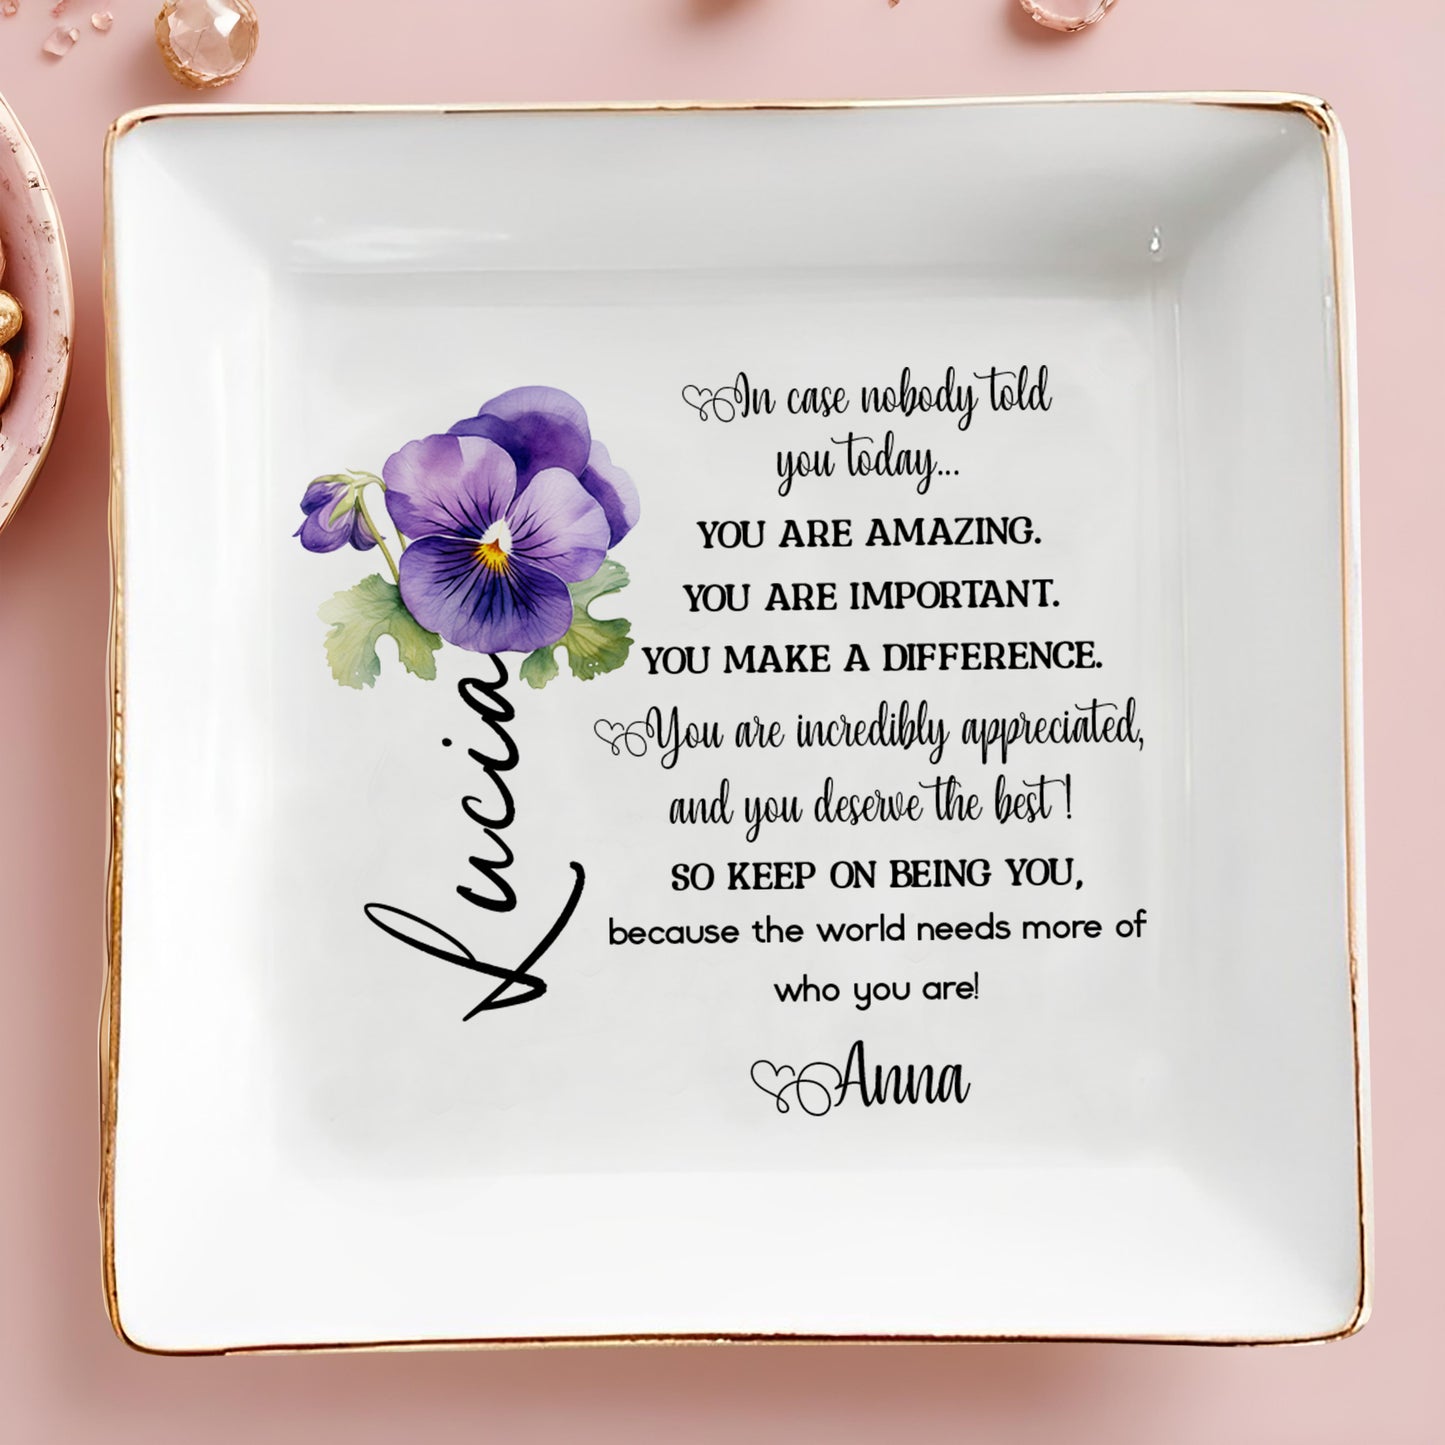 In case nobody told
you today...
YOU ARE AMAZING.
YOU ARE IMPORTANT.
YOU MAKE A DIFFERENCE.
You are incredibly appreciated,
and you deserve the best!
SO KEEP ON BEING YOU,
because the world needs more of
who you are!
Anna
Lucia